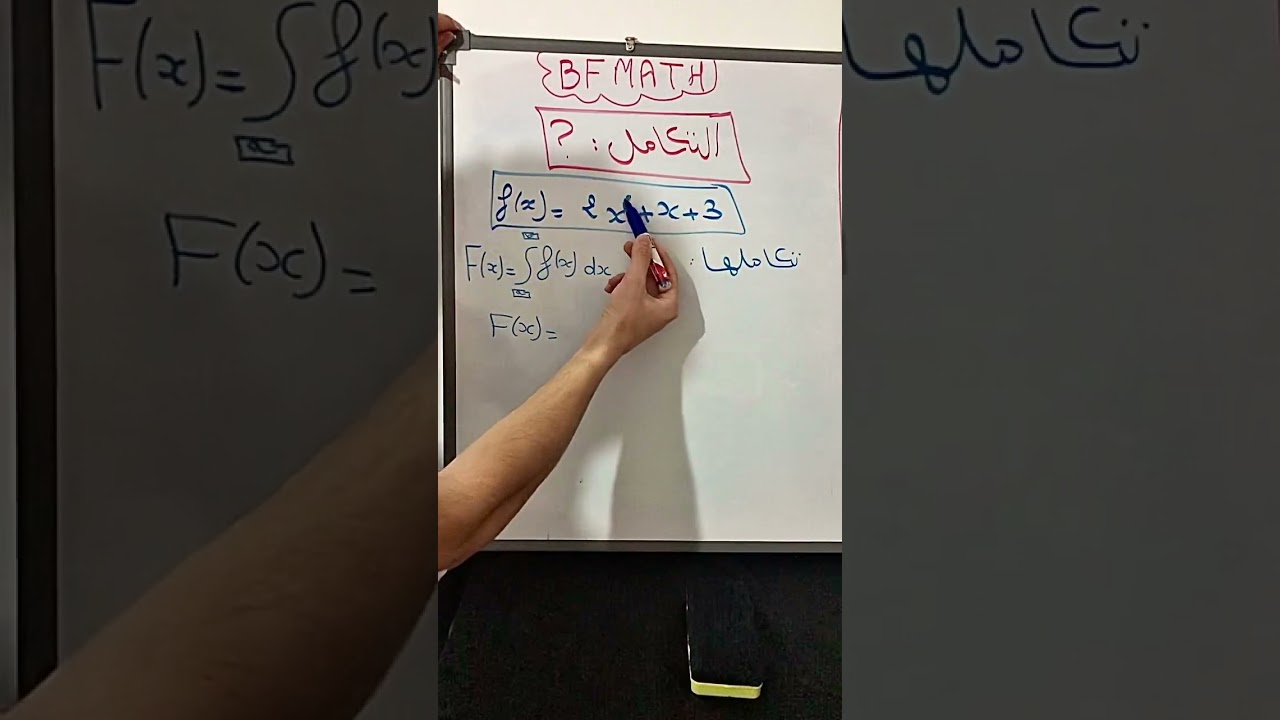 BF MATH
التكامل : ?
f(x) = 2x² + x + 3
تكاملها :
F(x) = ∫ f(x) dx
F(x) =